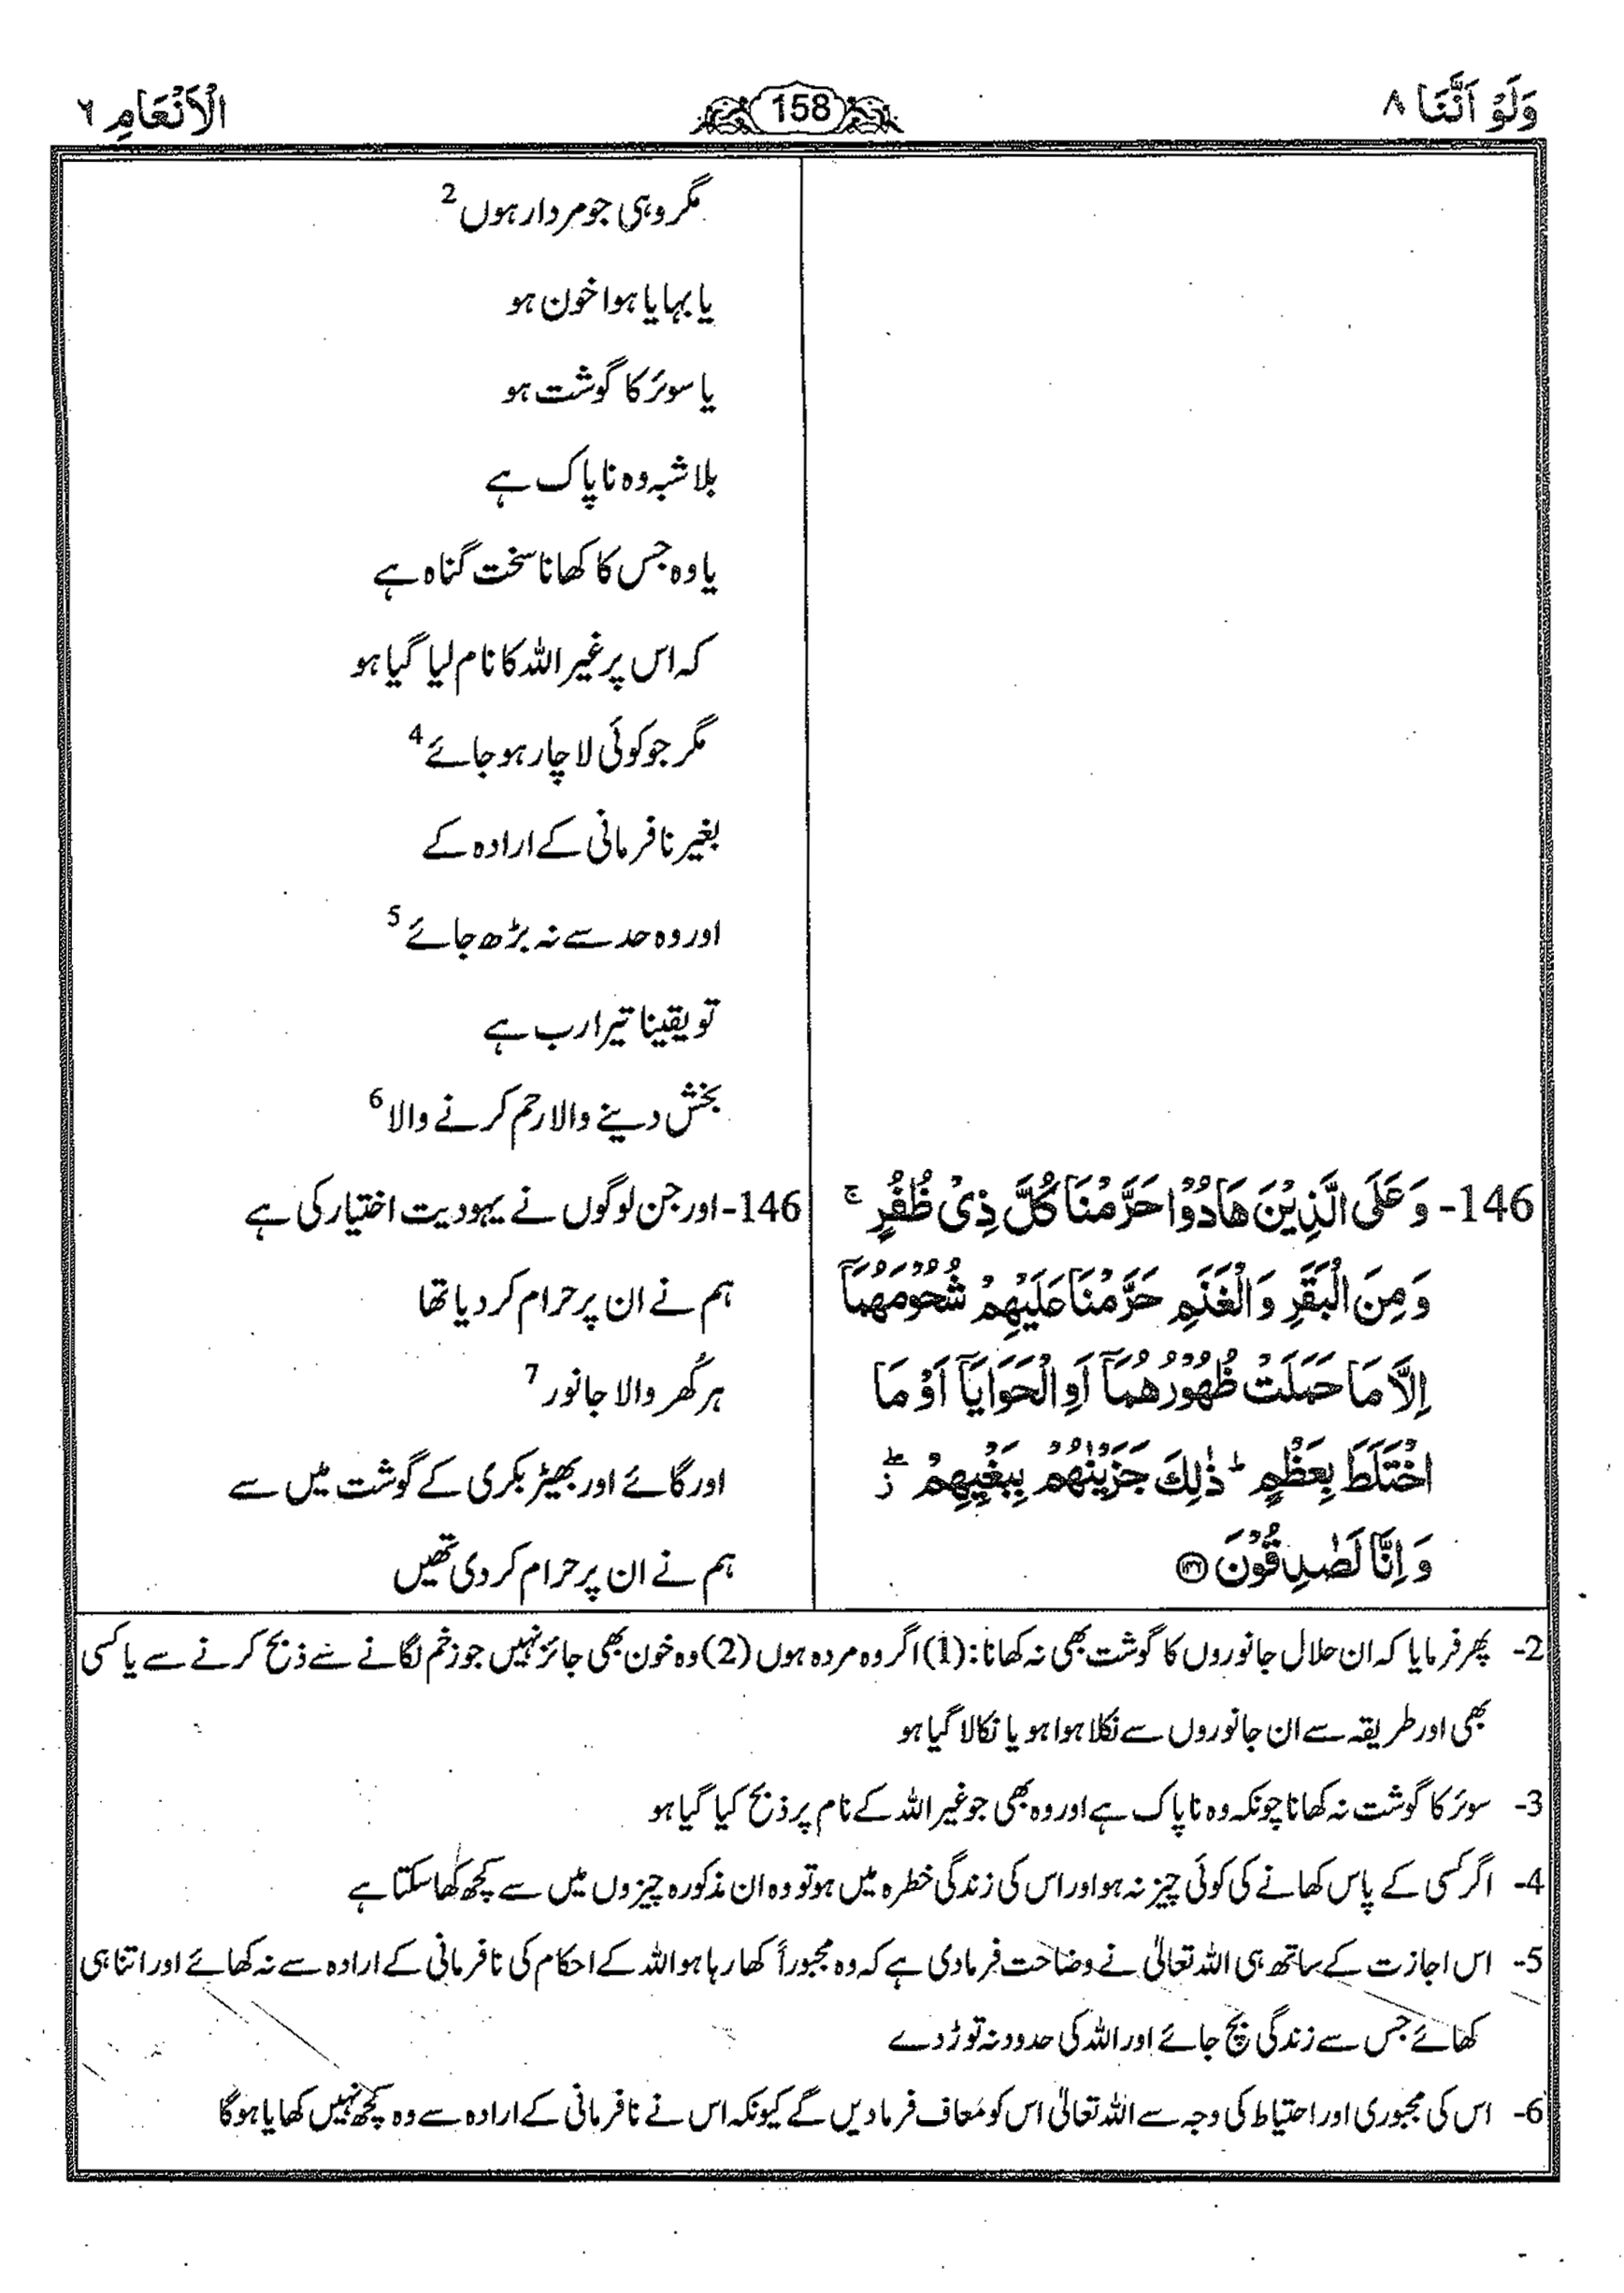 وَلَوْ اَنَّنَا ۸
158
الْاَنْعَامِ ٦
مگر وہی جو مردار ہوں 2
یا بہایا ہوا خون ہو
یا سوئر کا گوشت ہو
بلاشبہ وہ ناپاک ہے
یا وہ جس کا کھانا سخت گناہ ہے
کہ اس پر غیر اللہ کا نام لیا گیا ہو
مگر جو کوئی لاچار ہو جائے 4
بغیر نافرمانی کے ارادہ کے
اور وہ حد سے نہ بڑھ جائے 5
تو یقینا تیرا رب ہے
بخش دینے والا رحم کرنے والا 6
146- وَعَلَى الَّذِيْنَ هَادُوْا حَرَّمْنَا كُلَّ ذِيْ ظُفُرٍ ۚ
وَمِنَ الْبَقَرِ وَالْغَنَمِ حَرَّمْنَا عَلَيْهِمْ شُحُوْمَهُمَاۤ
اِلَّا مَا حَمَلَتْ ظُهُوْرُهُمَاۤ اَوِ الْحَوَايَاۤ اَوْ مَا
اخْتَلَطَ بِعَظْمٍ ؕ ذٰلِكَ جَزَيْنٰهُمْ بِبَغْيِهِمْ ۖ ز
وَاِنَّا لَصٰدِقُوْنَ ۝۱۴۶
146- اور جن لوگوں نے یہودیت اختیار کی ہے
ہم نے ان پر حرام کر دیا تھا
ہر گھر والا جانور 7
اور گائے اور بھیڑ بکری کے گوشت میں سے
ہم نے ان پر حرام کر دی تھیں
2- پھر فرمایا کہ ان حلال جانوروں کا گوشت بھی نہ کھانا: (1) اگر وہ مردہ ہوں (2) وہ خون بھی جائز نہیں جو زخم لگانے سے ذبح کرنے سے یا کسی
بھی اور طریقہ سے ان جانوروں سے نکلا ہوا ہو یا نکالا گیا ہو
3- سوئر کا گوشت نہ کھانا چونکہ وہ ناپاک ہے اور وہ بھی جو غیر اللہ کے نام پر ذبح کیا گیا ہو
4- اگر کسی کے پاس کھانے کی کوئی چیز نہ ہو اور اس کی زندگی خطرہ میں ہو تو وہ ان مذکورہ چیزوں میں سے کچھ کھا سکتا ہے
5- اس اجازت کے ساتھ ہی اللہ تعالیٰ نے وضاحت فرمادی ہے کہ وہ مجبوراً کھا رہا ہو اللہ کے احکام کی نافرمانی کے ارادہ سے نہ کھائے اور اتنا ہی
کھائے جس سے زندگی بچ جائے اور اللہ کی حدود نہ توڑ دے
6- اس کی مجبوری اور احتیاط کی وجہ سے اللہ تعالیٰ اس کو معاف فرمادیں گے کیونکہ اس نے نافرمانی کے ارادہ سے وہ کچھ نہیں کھایا ہوگا